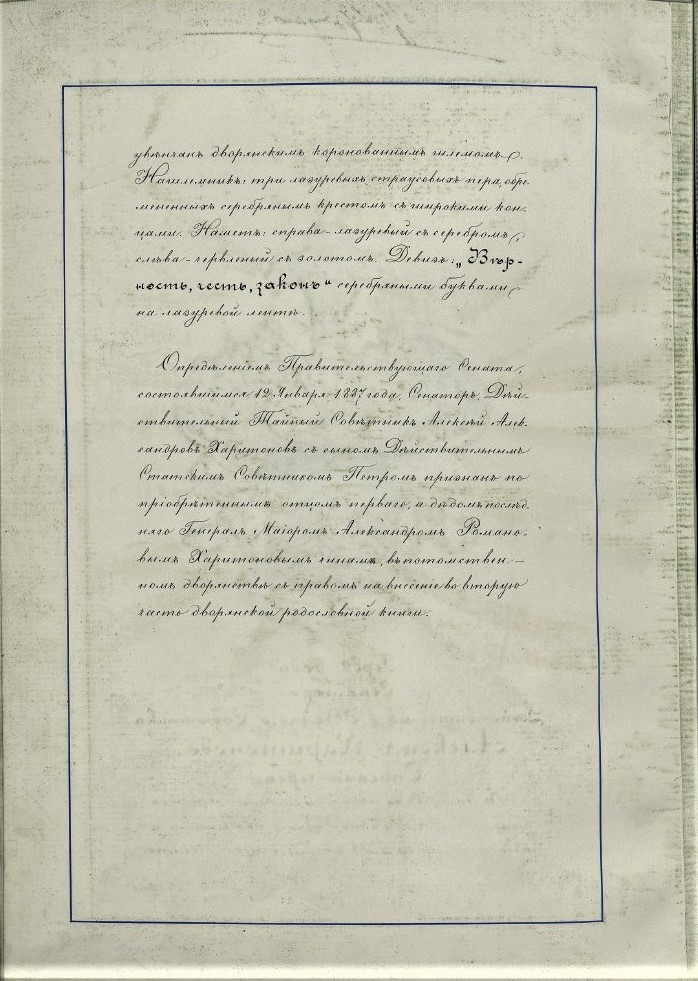 увѣнчанъ дворянскимъ коронованнымъ шлемомъ.
Нашлемникъ: три лазуревыхъ страусовыхъ пера, обре-
мененныхъ серебрянымъ крестомъ съ широкими кон-
цами. Наметъ: справа – лазуревый съ серебромъ,
слѣва – червленый съ золотомъ. Девизъ: „Вѣр-
ность, честь, законъ“ серебряными буквами
на лазуревой лентѣ.
Опредѣленіемъ Правительствующаго Сената,
состоявшимся 12 Января 1887 года, Сенаторъ, Дѣй-
ствительный Тайный Совѣтникъ Алексѣй Алек-
сандровъ Харитоновъ съ сыномъ Дѣйствительнымъ
Статскимъ Совѣтникомъ Петромъ признанъ по
пріобрѣтеннымъ отцомъ перваго, а дѣдомъ послѣд-
няго Генералъ Маіоромъ Александромъ Романо-
вымъ Харитоновымъ чинамъ, въ потомствен-
номъ дворянствѣ съ правомъ на внесеніе во вторую
часть дворянской родословной книги.